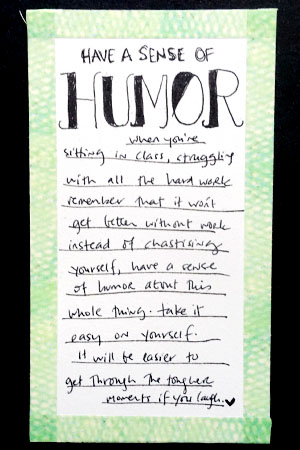 HAVE A SENSE OF
HUMOR
when you're
sitting in class, struggling
with all the hard work
remember that it won't
get better without work
instead of chastising
yourself, have a sense
of humor about this
whole thing. take it
easy on yourself.
it will be easier to
get through the tougher
moments if you laugh.♥